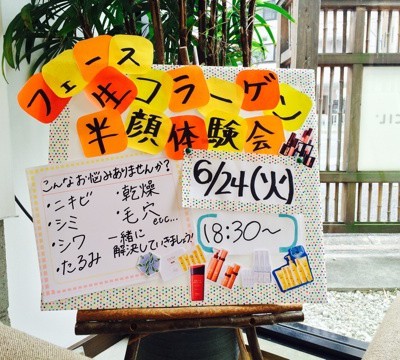 フェース
生コラーゲン
半顔体験会
こんなお悩みありませんか?
・ニキビ
・シミ
・シワ
・たるみ
・乾燥
・毛穴
etc...
一緒に
解決していきましょう!
6/24(火)
18:30〜